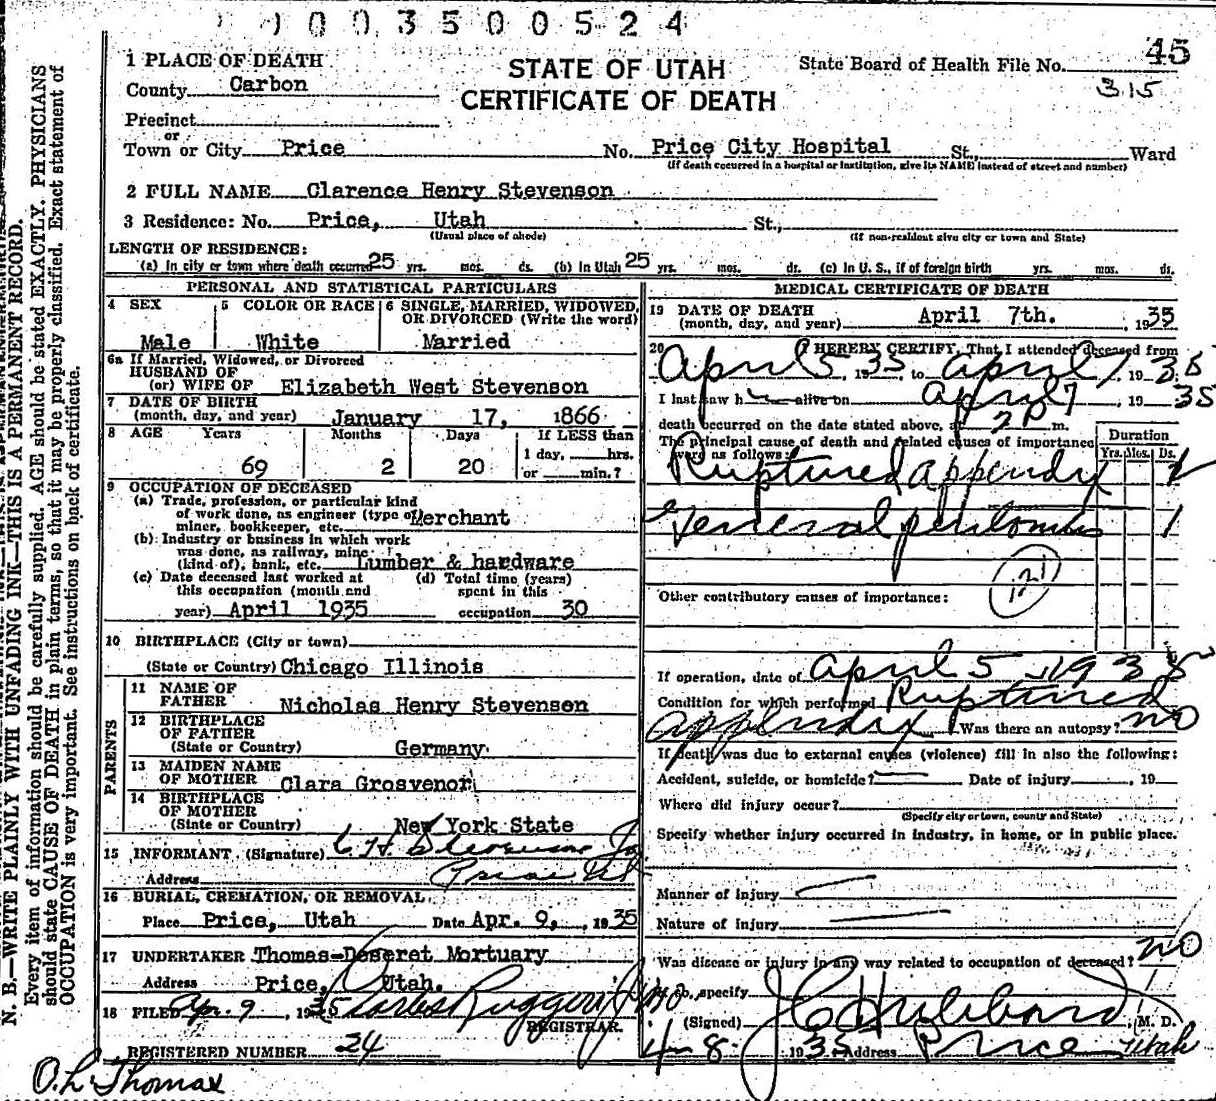 003500524
45
1 PLACE OF DEATH
STATE OF UTAH
CERTIFICATE OF DEATH
State Board of Health File No.
315
County Carbon
Precinct
or
Town or City Price No. Price City Hospital St., Ward
(If death occurred in a hospital or institution, give its NAME instead of street and number)
2 FULL NAME Clarence Henry Stevenson
3 Residence: No. Price, Utah St.,
(Usual place of abode) (If non-resident give city or town and State)
LENGTH OF RESIDENCE:
(a) In city or town where death occurred 25 yrs. mos. ds. (b) In Utah 25 yrs. mos. ds. (c) In U. S., if of foreign birth yrs. mos. ds.
PERSONAL AND STATISTICAL PARTICULARS
4 SEX 5 COLOR OR RACE 6 SINGLE, MARRIED, WIDOWED,
OR DIVORCED (Write the word)
Male White Married
6a If Married, Widowed, or Divorced
HUSBAND OF
(or) WIFE OF Elizabeth West Stevenson
7 DATE OF BIRTH
(month, day, and year) January 17, 1866
8 AGE Years Months Days If LESS than
1 day, hrs.
69 2 20 or min.?
9 OCCUPATION OF DECEASED
(a) Trade, profession, or particular kind
of work done, as engineer (type of
miner, bookkeeper, etc. Merchant
(b) Industry or business in which work
was done, as railway, mine
(kind of), bank, etc. Lumber & hardware
(c) Date deceased last worked at
this occupation (month and
year) April 1935
(d) Total time (years)
spent in this
occupation 30
10 BIRTHPLACE (City or town)
(State or Country) Chicago Illinois
PARENTS
11 NAME OF
FATHER Nicholas Henry Stevenson
12 BIRTHPLACE
OF FATHER
(State or Country) Germany
13 MAIDEN NAME
OF MOTHER Clara Grosvenor
14 BIRTHPLACE
OF MOTHER
(State or Country) New York State
15 INFORMANT (Signature) C H Stevenson Jr
Address Price Ut
16 BURIAL, CREMATION, OR REMOVAL
Place Price, Utah Date Apr. 9, 1935
17 UNDERTAKER Thomas-Deseret Mortuary
Address Price, Utah.
18 FILED Apr. 9, 1935
REGISTRAR.
REGISTERED NUMBER 24
O. L. Thomas
MEDICAL CERTIFICATE OF DEATH
19 DATE OF DEATH
(month, day, and year) April 7th. 1935
20 I HEREBY CERTIFY, That I attended deceased from
April 5, 1935, to April 7, 1935
I last saw h alive on April 7, 1935
death occurred on the date stated above, at 2 P m.
The principal cause of death and related causes of importance
were as follows: Duration
Yrs. Mos. Ds.
Ruptured appendix 2
General peritonitis 1
121
Other contributory causes of importance:
If operation, date of April 5, 1935
Condition for which performed Ruptured
appendix Was there an autopsy? no
If death was due to external causes (violence) fill in also the following:
Accident, suicide, or homicide? Date of injury , 19
Where did injury occur?
(Specify city or town, county and State)
Specify whether injury occurred in industry, in home, or in public place.
Manner of injury
Nature of injury
Was disease or injury in any way related to occupation of deceased? no
If so, specify
(Signed) J C Hubbard, M. D.
4-8- 1935 Address Price Utah
N. B.—WRITE PLAINLY WITH UNFADING INK—THIS IS A PERMANENT RECORD.
Every item of information should be carefully supplied. AGE should be stated EXACTLY. PHYSICIANS
should state CAUSE OF DEATH in plain terms, so that it may be properly classified. Exact statement of
OCCUPATION is very important. See instructions on back of certificate.